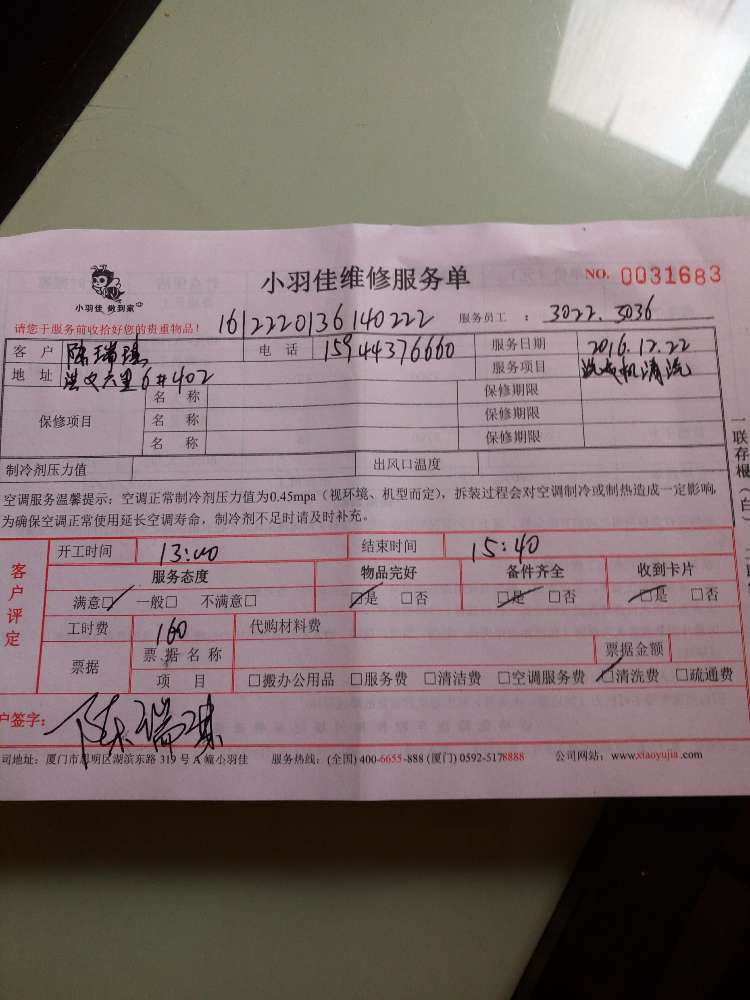 小羽佳 做到家
小羽佳维修服务单
NO. 0031683
请您于服务前收拾好您的贵重物品！ 1612220136140222 服务员工 ： 3022. 3036
客户 陈瑞琪 电话 15944376660 服务日期 2016.12.22
地址 洪文六里6#402 服务项目 洗衣机清洗
保修项目 名称 保修期限
名称 保修期限
名称 保修期限
制冷剂压力值 出风口温度
空调服务温馨提示：空调正常制冷剂压力值为0.45mpa（视环境、机型而定），拆装过程会对空调制冷或制热造成一定影响，
为确保空调正常使用延长空调寿命，制冷剂不足时请及时补充。
客户评定
开工时间 13:00 结束时间 15:40
服务态度 物品完好 备件齐全 收到卡片
满意☑ 一般□ 不满意□ ☑是 □否 ☑是 □否 ☑是 □否
工时费 160 代购材料费
票据 票据名称 票据金额
项目 □搬办公用品 □服务费 □清洁费 □空调服务费 ☑清洗费 □疏通费
户签字： 陈瑞琪
司地址：厦门市思明区湖滨东路 319 号 A 幢小羽佳 服务热线：(全国) 400-6655-888 (厦门) 0592-5178888 公司网站：www.xiaoyujia.com
一联存根（白）